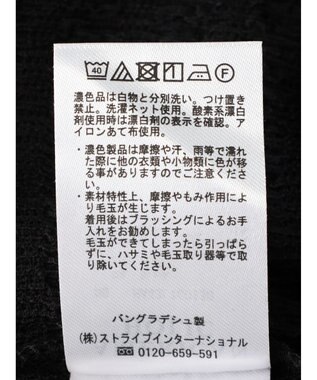 40 F
濃色品は白物と分別洗い。つけ置き
禁止。洗濯ネット使用。酸素系漂白
剤使用時は漂白剤の表示を確認。ア
イロンあて布使用。
・濃色製品は摩擦や汗、雨等で濡れ
た際に他の衣類や小物類に色が移
る事がありますのでご注意くださ
い。
・素材特性上、摩擦やもみ作用によ
り毛玉が生じます。
着用後はブラッシングによるお手
入れをお勧めします。
毛玉ができてしまったら引っぱら
ずに、ハサミや毛玉取り器等で取
り除いてください。
バングラデシュ製
(株)ストライプインターナショナル
0120-659-591